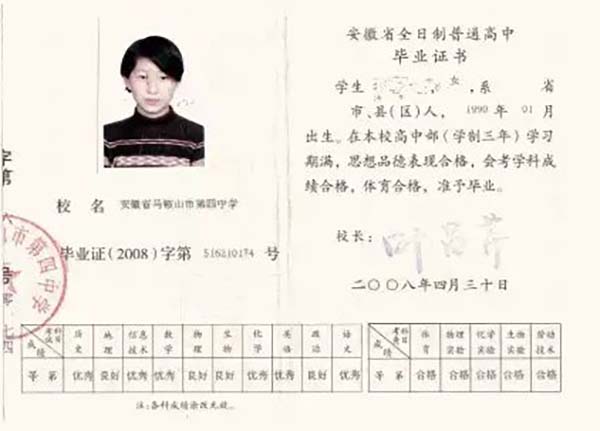 安徽省全日制普通高中
毕业证书
学生 女,系 省
市、县(区)人, 1990 年 01 月
出生。在本校高中部(学制三年)学习
期满,思想品德表现合格,会考学科成
绩合格,体育合格,准予毕业。
校长:
二〇〇八年四月三十日
校 名 安徽省马鞍山市第四中学
毕业证(2008)字第 516210174 号
字第
号
零
七四
市第四中学
考试科目 成绩 历史 地理 信息技术 数学 物理 生物 化学 英语 政治 语文
等第 优秀 良好 优秀 优秀 良好 良好 优秀 优秀 良好 优秀
考查科目 成绩 体育 物理实验 化学实验 生物实验 劳动技术
等第 合格 合格 合格 合格 合格
注:各科成绩涂改无效。